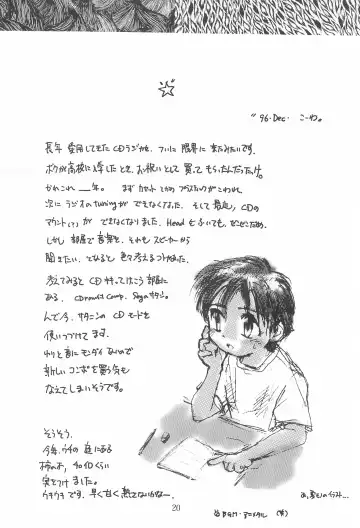 '96. Dec. こーわ。
長年 愛用してきた CDラジカセ、ついに 限界に 来たみたいです。
ボクが高校に入学した とき、お祝いとして 買って もらったんだったけ。
かれこれ __年。 まず カセット の プラスティックがこわれ
次に ラジオのtuningが できなくなった。 そして 最近、CDの
マウント(?)が できなくなりました。Head も ふいても、ぜんぜんだめ。
しかし 部屋で 音楽を、それも スピーカーから
聞きたい、となると 色々考えるつけました。
考えてみると CD
ある。CD Comp. Segaサタン。
んで 今、サターンの CD モードを
使いつづけて ます。
わりと 音に モンダイ ないので
新しい コンポ を 買う気も
なえてしまいそうです。
そうそう。
今年、ウチの 庭にある
柿の木、40個くらい
実をつけました。
ウキウキ です。早く 甘く 熟さないかなー。
20
あ、夏もののイラスト…